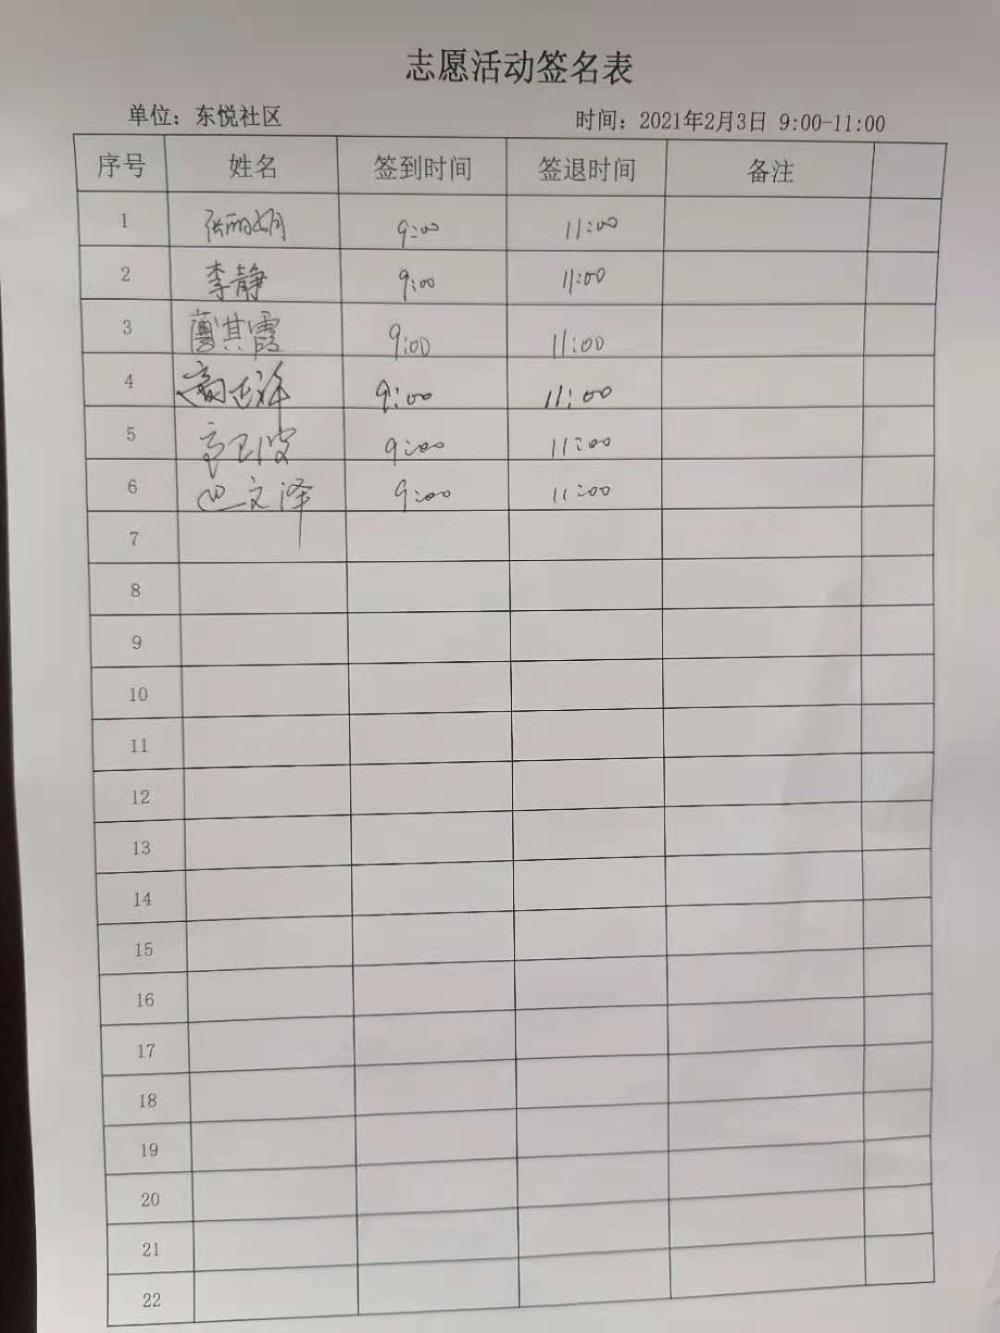 志愿活动签名表
单位：东悦社区 时间：2021年2月3日 9:00-11:00
序号 姓名 签到时间 签退时间 备注
1 张丽娟 9:00 11:00
2 李静 9:00 11:00
3 其霞 9:00 11:00
4 9:00 11:00
5 9:00 11:00
6 文泽 9:00 11:00
7
8
9
10
11
12
13
14
15
16
17
18
19
20
21
22